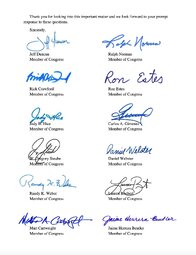 Thank you for looking into this important matter and we look forward to your prompt
response to these questions.
Sincerely,
Jeff Duncan
Member of Congress
Ralph Norman
Ralph Norman
Member of Congress
Rick Crawford
Member of Congress
Ron Estes
Ron Estes
Member of Congress
Jody B. Hice
Member of Congress
Carlos A. Gimenez
Member of Congress
W. Gregory Steube
Member of Congress
Daniel Webster
Daniel Webster
Member of Congress
Randy K. Weber
Randy K. Weber
Member of Congress
Member of Congress
Matt Cartwright
Member of Congress
Jaime Herrera Beutler
Jaime Herrera Beutler
Member of Congress